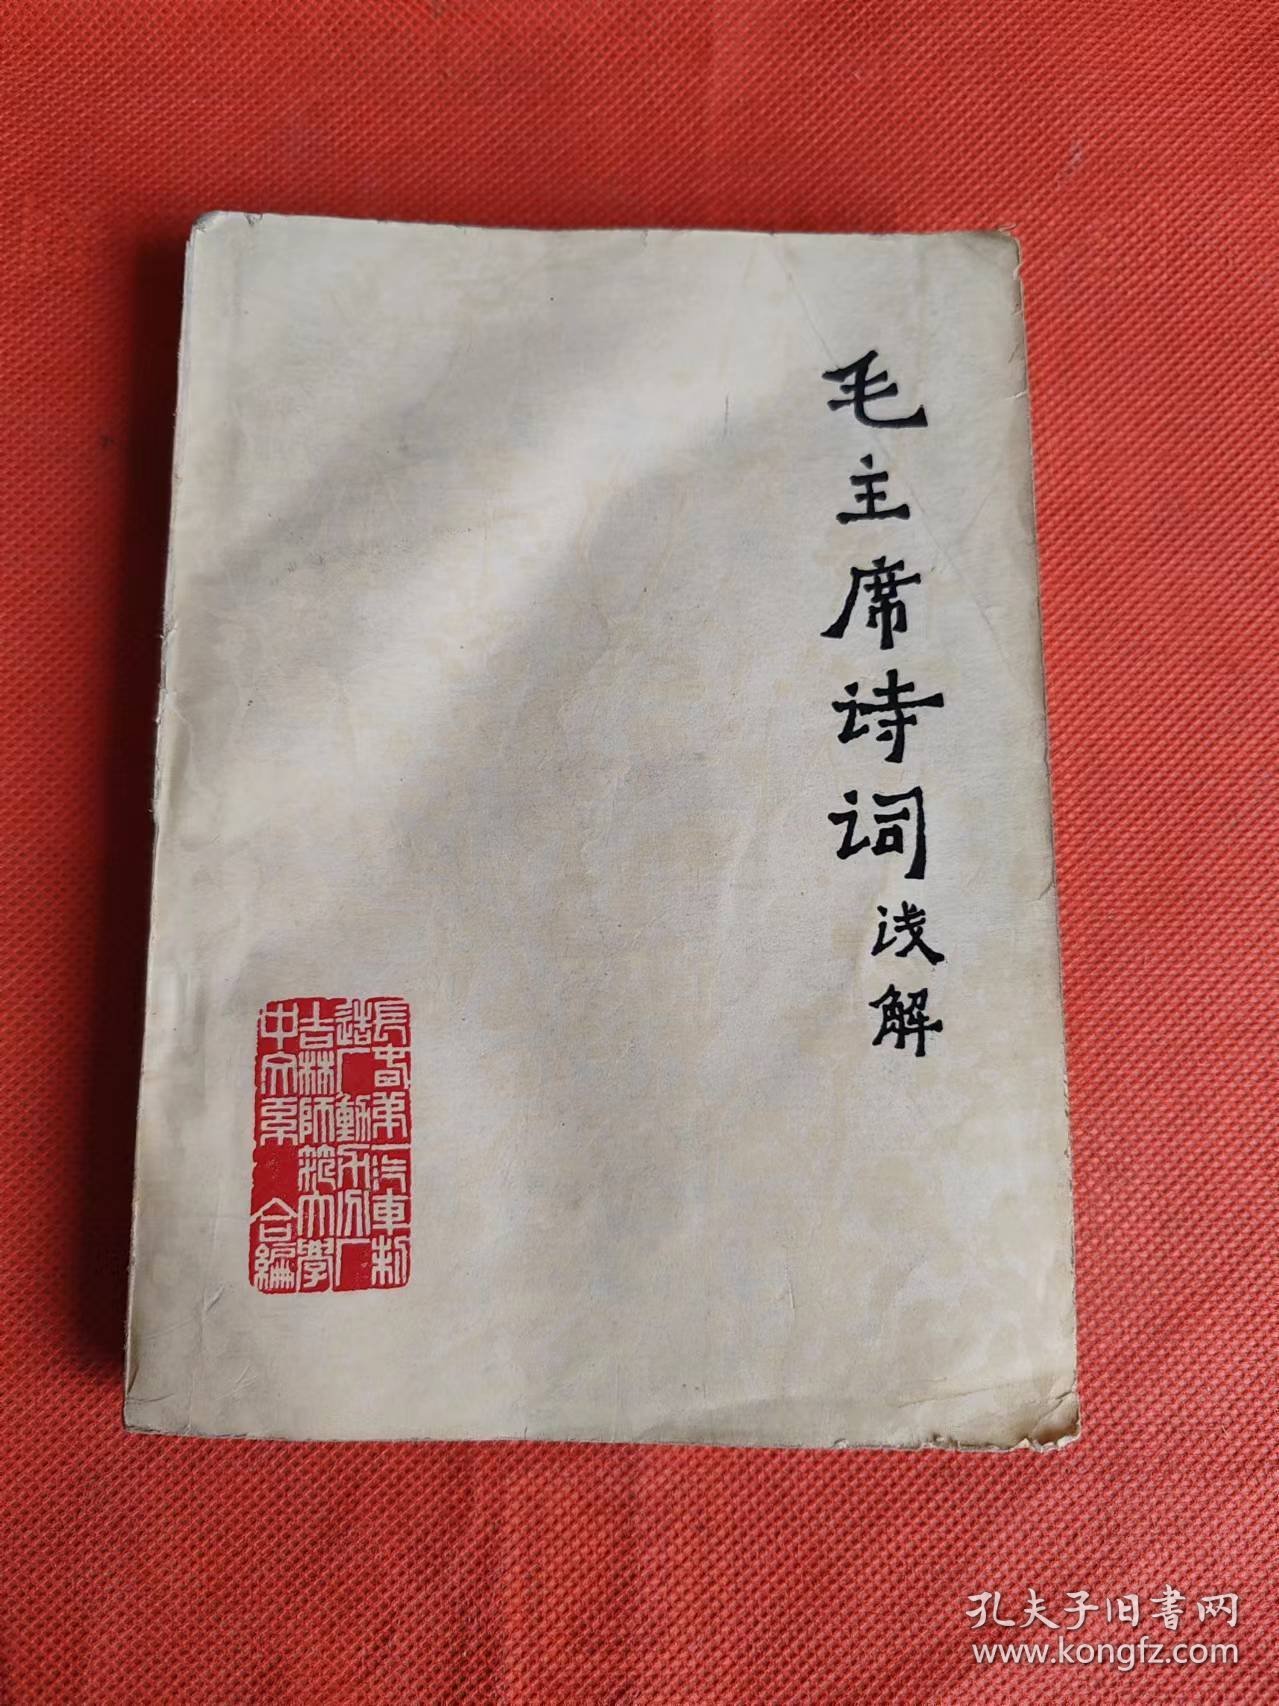 毛主席诗词浅解
長春第一汽車制
造厂動力分厂
吉林師範大學
中文系 合編
孔夫子旧書网
www.kongfz.com